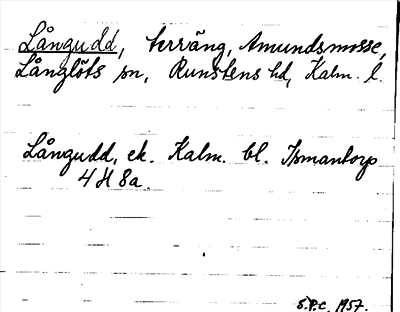 Långudd, terräng, Amundsmosse,
Långlöts sn, Runstens hd, Kalm. l.
Långudd, ek. Kalm. bl. Ismantorp
4 H 8a.
S.P.C. 1957.